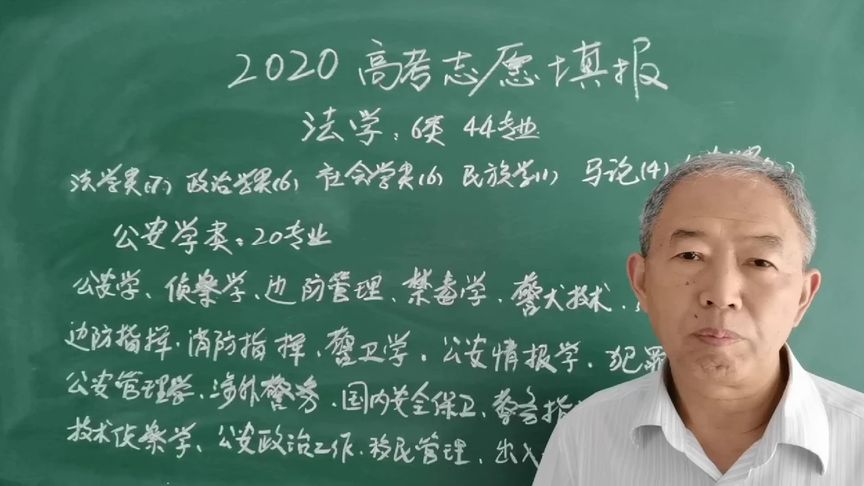 2020高考志愿填报
法学:6类 44专业
法学类(7) 政治学类(6) 社会学类(6) 民族学(1) 马论(4)
公安学类:20专业
公安学、侦察学、边防管理、禁毒学、警犬技术、
边防指挥、消防指挥、警卫学、公安情报学、犯罪
公安管理学、涉外警务、国内安全保卫、警务指
技术侦察学、公安政治工作、移民管理、出入